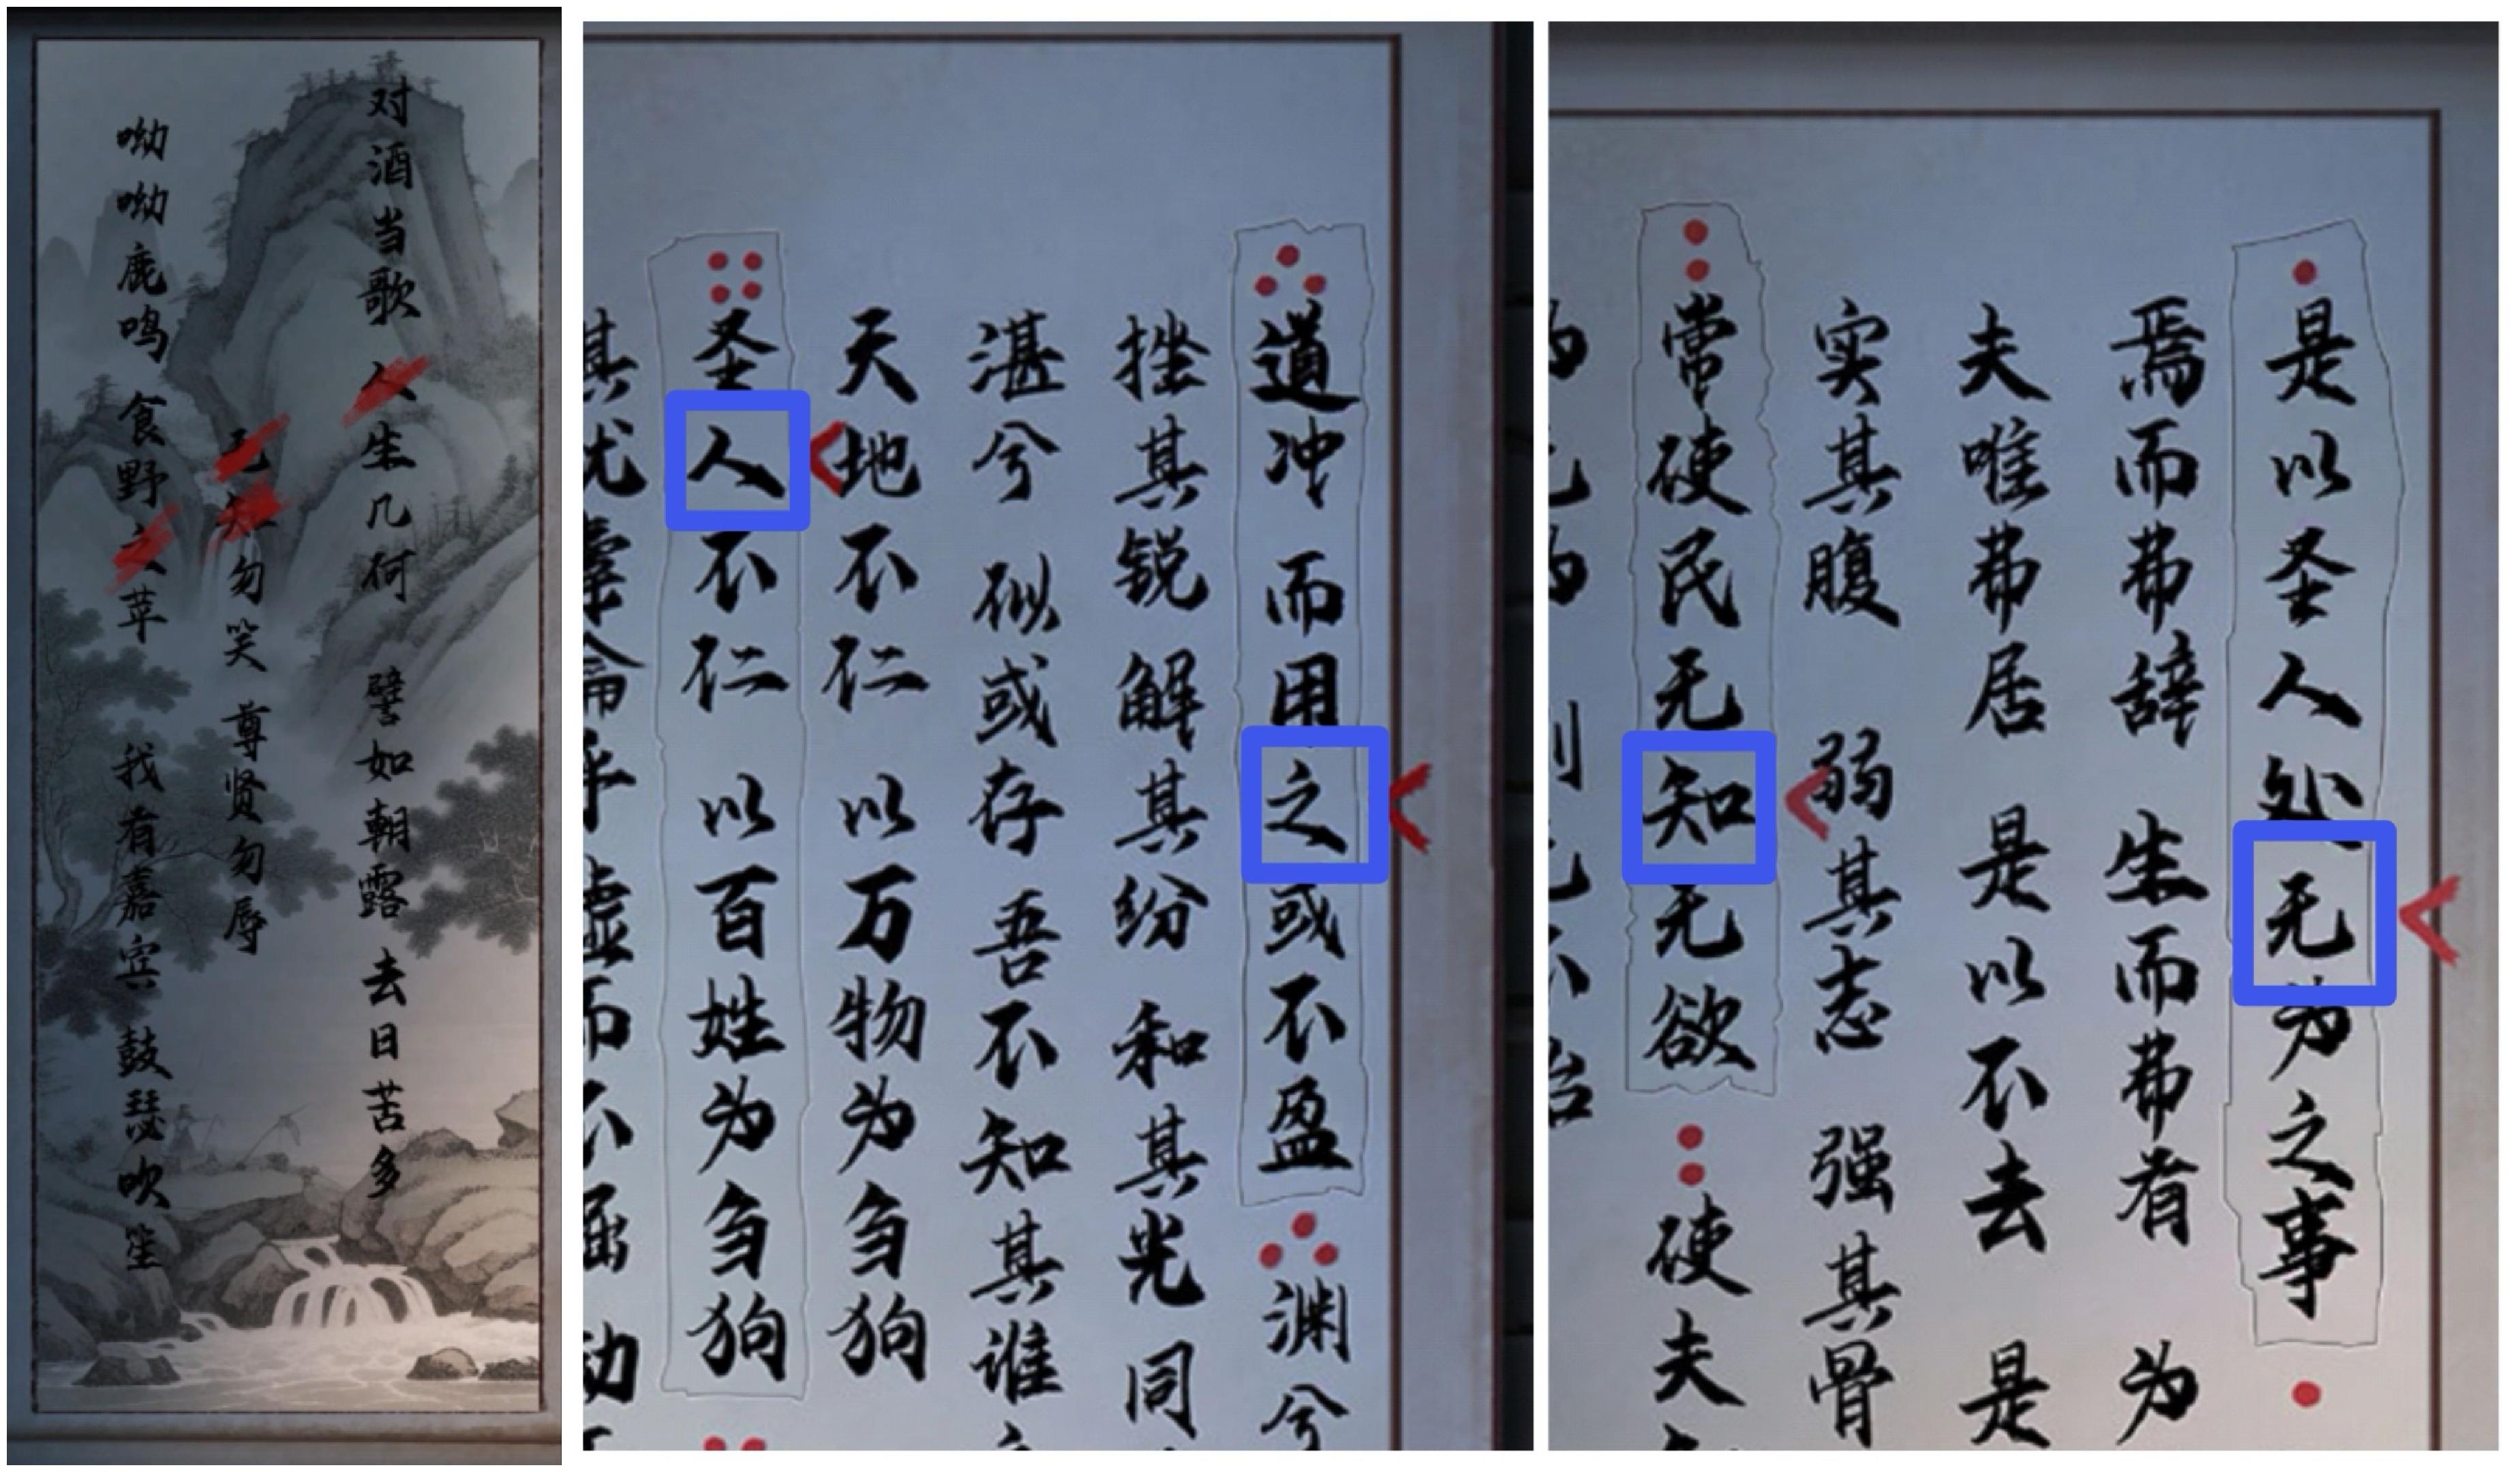 对酒当歌 生几何 譬如朝露 去日苦多
勿笑 尊贤勿辱
呦呦鹿鸣 食野 苹 我有嘉宾 鼓瑟吹笙
道冲 而用之或不盈 渊兮
挫其锐 解其纷 和其光 同
湛兮 似或存 吾不知其谁
天地不仁 以万物为刍狗
圣人不仁 以百姓为刍狗
其犹橐龠乎 虚而不屈 动
是以圣人处无为之事
焉而弗辞 生而弗有 为
夫唯弗居 是以不去 是
实其腹 弱其志 强其骨
常使民无知无欲 使夫